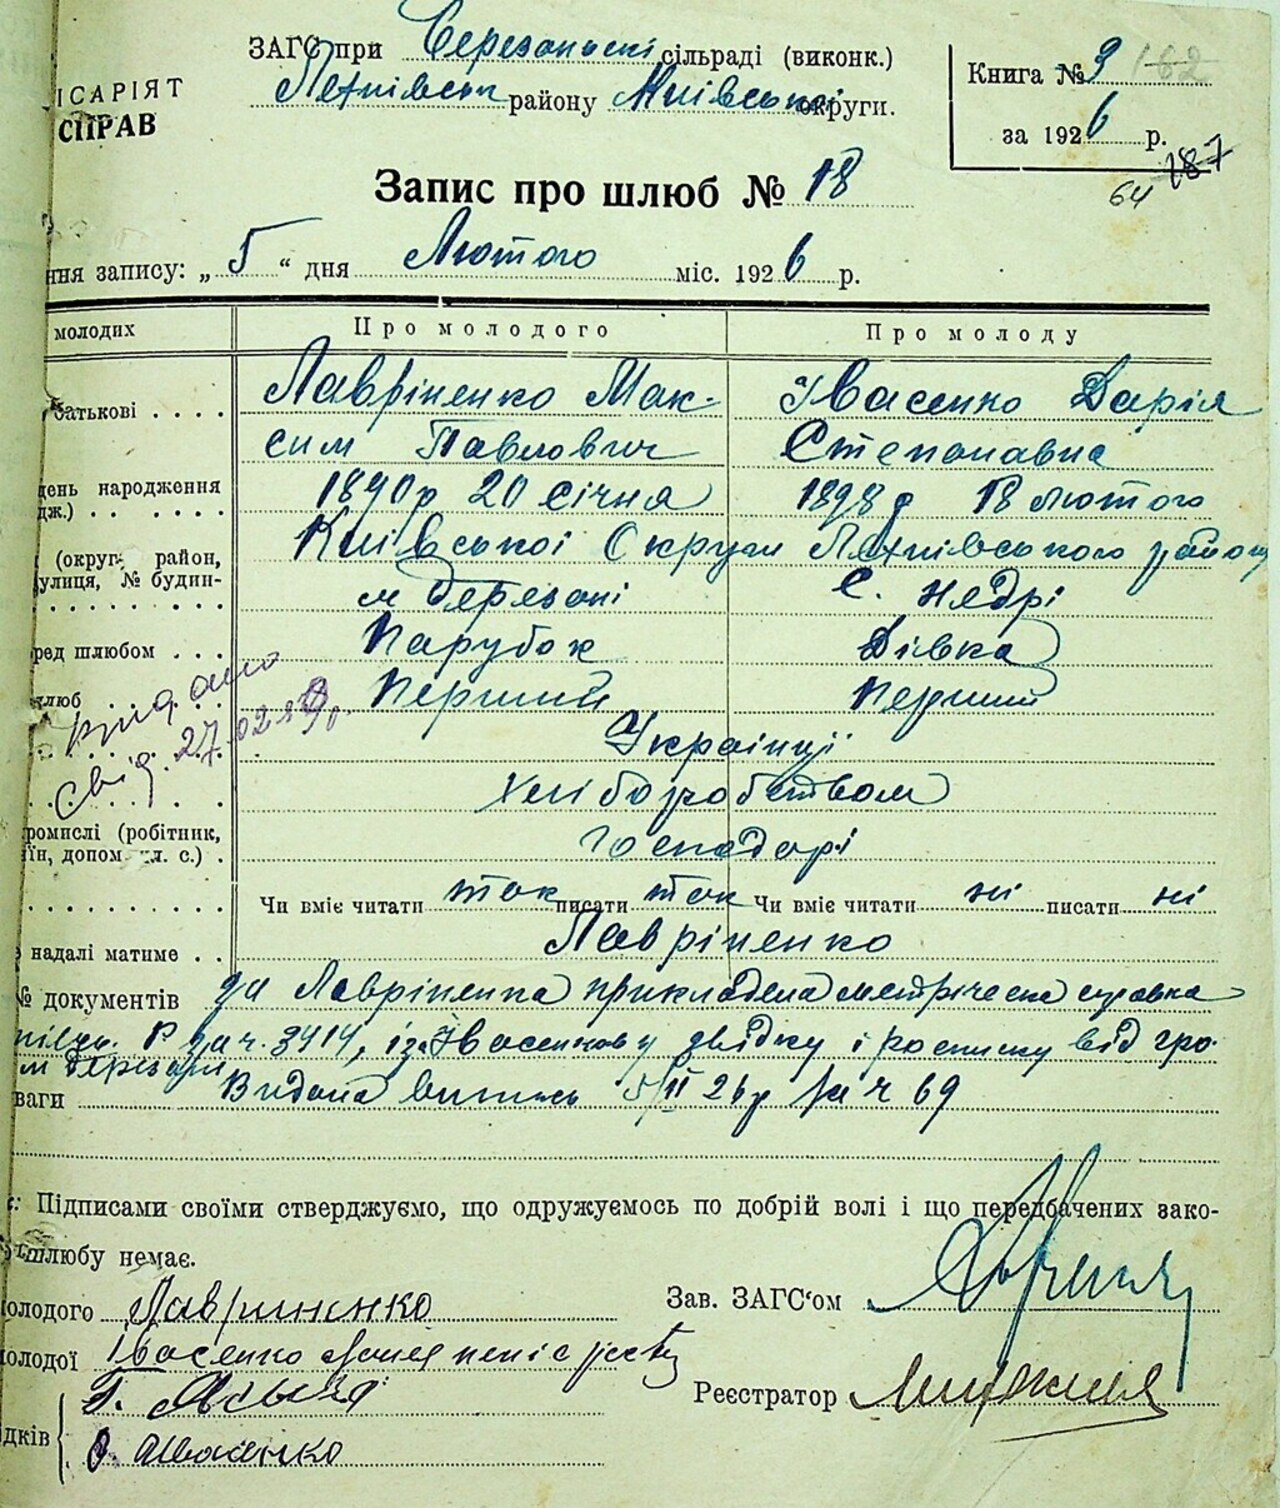 ЗАГС при Березанські сільраді (виконк.)
району Київської округи.
Книга № 9 162
за 1926 р.
187
64
ІСАРІЯТ
СПРАВ
Запис про шлюб № 18
ння запису: „5“ дня Лютого міс. 1926 р.
молодих Про молодого Про молоду
батькові . . . . Лавріненко Мак- Івасенко Дарія
сим Павлович Степановна
день народження 1890 р 20 Січня 1898 р 18 лютого
дж.) . . . . . .
(округ, район, Київської Округи Яготинського району
улиця, № будин-
м Березані с. Недрі
ред шлюбом . . . Парубок Дівка
шлюб Перший Перший
видано
свід. 27.02
Українці
хліборобством
ромислі (робітник,
їн, допом. чл. с.) . Господарі
Чи вміє читати так писати так Чи вміє читати ні писати ні
надалі матиме . . Лавріненко
№ документів за Лавріненка прикладена метрическа справка
за ч. 3414, і за Івасенкову звідку і росписку від гро.
м Березані
ваги Видана випись 5/II 26 р за ч 69
Підписами своїми стверджуємо, що одружуємось по добрій волі і що передбачених зако-
шлюбу немає.
олодого Лавриненко
Зав. ЗАГС'ом
олодої Івасенко
Реєстратор
Г.
дків
О. Іваненко